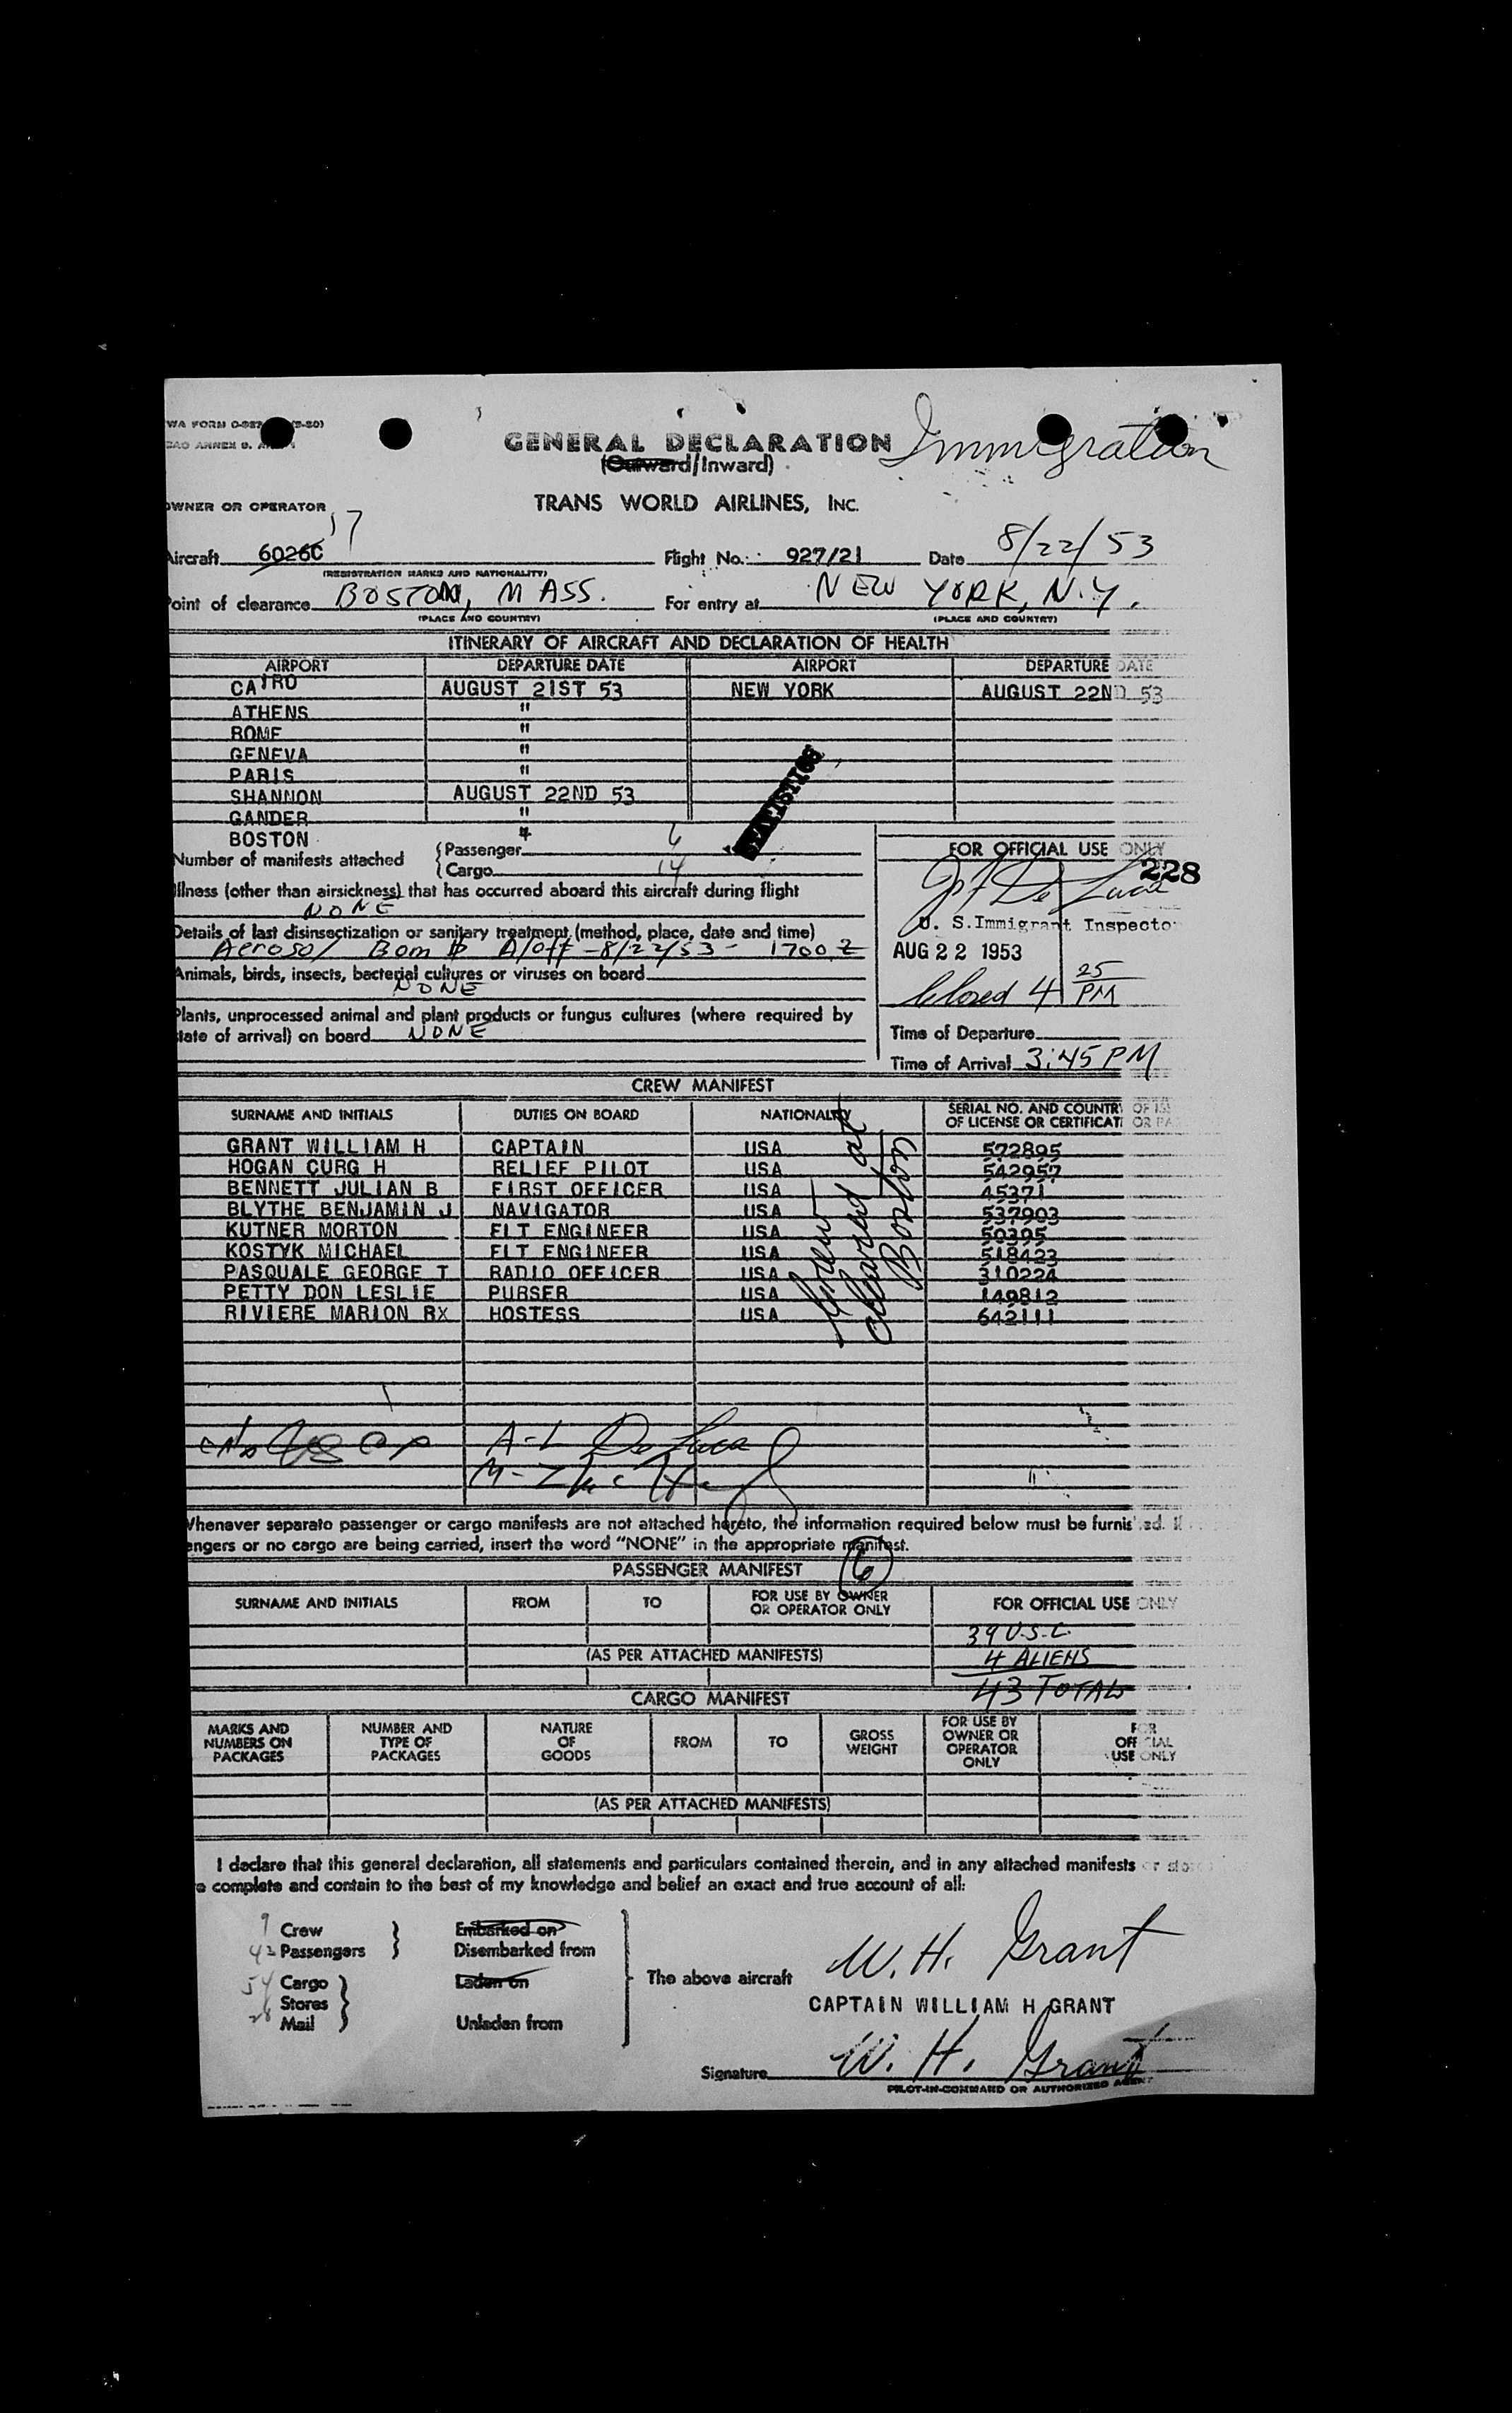 GENERAL DECLARATION
Immigration
(Outward/Inward)
OWNER OR OPERATOR TRANS WORLD AIRLINES, INC.
17
Aircraft 6026C Flight No. 927/21 Date 8/22/53
(REGISTRATION MARKS AND NATIONALITY)
Point of clearance BOSTON, MASS. For entry at NEW YORK, N.Y.
(PLACE AND COUNTRY) (PLACE AND COUNTRY)
ITINERARY OF AIRCRAFT AND DECLARATION OF HEALTH
AIRPORT DEPARTURE DATE AIRPORT DEPARTURE DATE
CAIRO AUGUST 21ST 53 NEW YORK AUGUST 22ND 53
ATHENS "
ROME "
GENEVA "
PARIS "
SHANNON AUGUST 22ND 53
GANDER "
BOSTON "
Number of manifests attached
Passenger 6
Cargo 14
Illness (other than airsickness) that has occurred aboard this aircraft during flight
NONE
Details of last disinsectization or sanitary treatment (method, place, date and time)
Aerosol Bomb A/off - 8/22/53 - 1700 Z
Animals, birds, insects, bacterial cultures or viruses on board
NONE
Plants, unprocessed animal and plant products or fungus cultures (where required by
state of arrival) on board NONE
FOR OFFICIAL USE ONLY
228
De Luca
U. S. Immigrant Inspector
AUG 22 1953
Closed 4 25 PM
Time of Departure
Time of Arrival 3:45 PM
CREW MANIFEST
SURNAME AND INITIALS DUTIES ON BOARD NATIONALITY SERIAL NO. AND COUNTRY OF ISS
OF LICENSE OR CERTIFICAT OR PA
GRANT WILLIAM H CAPTAIN USA 572895
HOGAN CURG H RELIEF PILOT USA 542957
BENNETT JULIAN B FIRST OFFICER USA 45371
BLYTHE BENJAMIN J NAVIGATOR USA 537903
KUTNER MORTON FLT ENGINEER USA 50395
KOSTYK MICHAEL FLT ENGINEER USA 518423
PASQUALE GEORGE T RADIO OFFICER USA 310224
PETTY DON LESLIE PURSER USA 149812
RIVIERE MARION RX HOSTESS USA 642111
Crew
cleared at
Boston
A-L De Luca
M-Z
Whenever separate passenger or cargo manifests are not attached hereto, the information required below must be furnished. If
engers or no cargo are being carried, insert the word "NONE" in the appropriate manifest.
PASSENGER MANIFEST
6
SURNAME AND INITIALS FROM TO FOR USE BY OWNER OR OPERATOR ONLY FOR OFFICIAL USE ONLY
39 U.S.C.
(AS PER ATTACHED MANIFESTS) 4 ALIENS
43 TOTAL
CARGO MANIFEST
MARKS AND NUMBERS ON PACKAGES NUMBER AND TYPE OF PACKAGES NATURE OF GOODS FROM TO GROSS WEIGHT FOR USE BY OWNER OR OPERATOR ONLY FOR OFFICIAL USE ONLY
(AS PER ATTACHED MANIFESTS)
I declare that this general declaration, all statements and particulars contained therein, and in any attached manifests or stor
e complete and contain to the best of my knowledge and belief an exact and true account of all:
9 Crew Embarked on
42 Passengers Disembarked from
54 Cargo Laden on
Stores
28 Mail Unladen from
The above aircraft
W. H. Grant
CAPTAIN WILLIAM H GRANT
Signature W. H. Grant
PILOT-IN-COMMAND OR AUTHORIZED AGENT